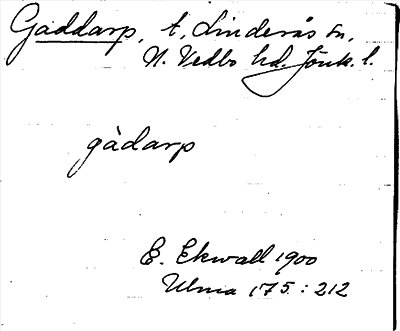 Gaddarp, t, Linderås sn,
N. Vedbo hd. Jönk. l.
gàdarp
E. Ekwall 1900
Ulma 175:212